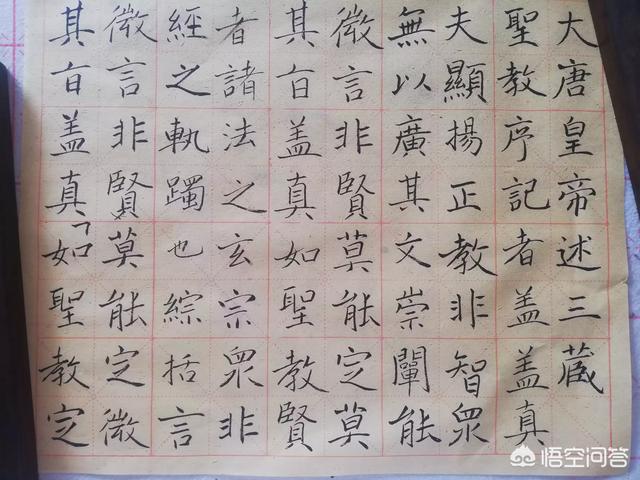 大唐皇帝述三藏
聖教序記者盖盖真
夫顯揚正教非智衆
無以廣其文崇闡能
微言非賢莫能定莫
其旨盖真如聖教賢
者諸法之玄宗衆非
經之執躅也綜括言
微言非賢莫能定微
其旨盖真如聖教定
悟空问答